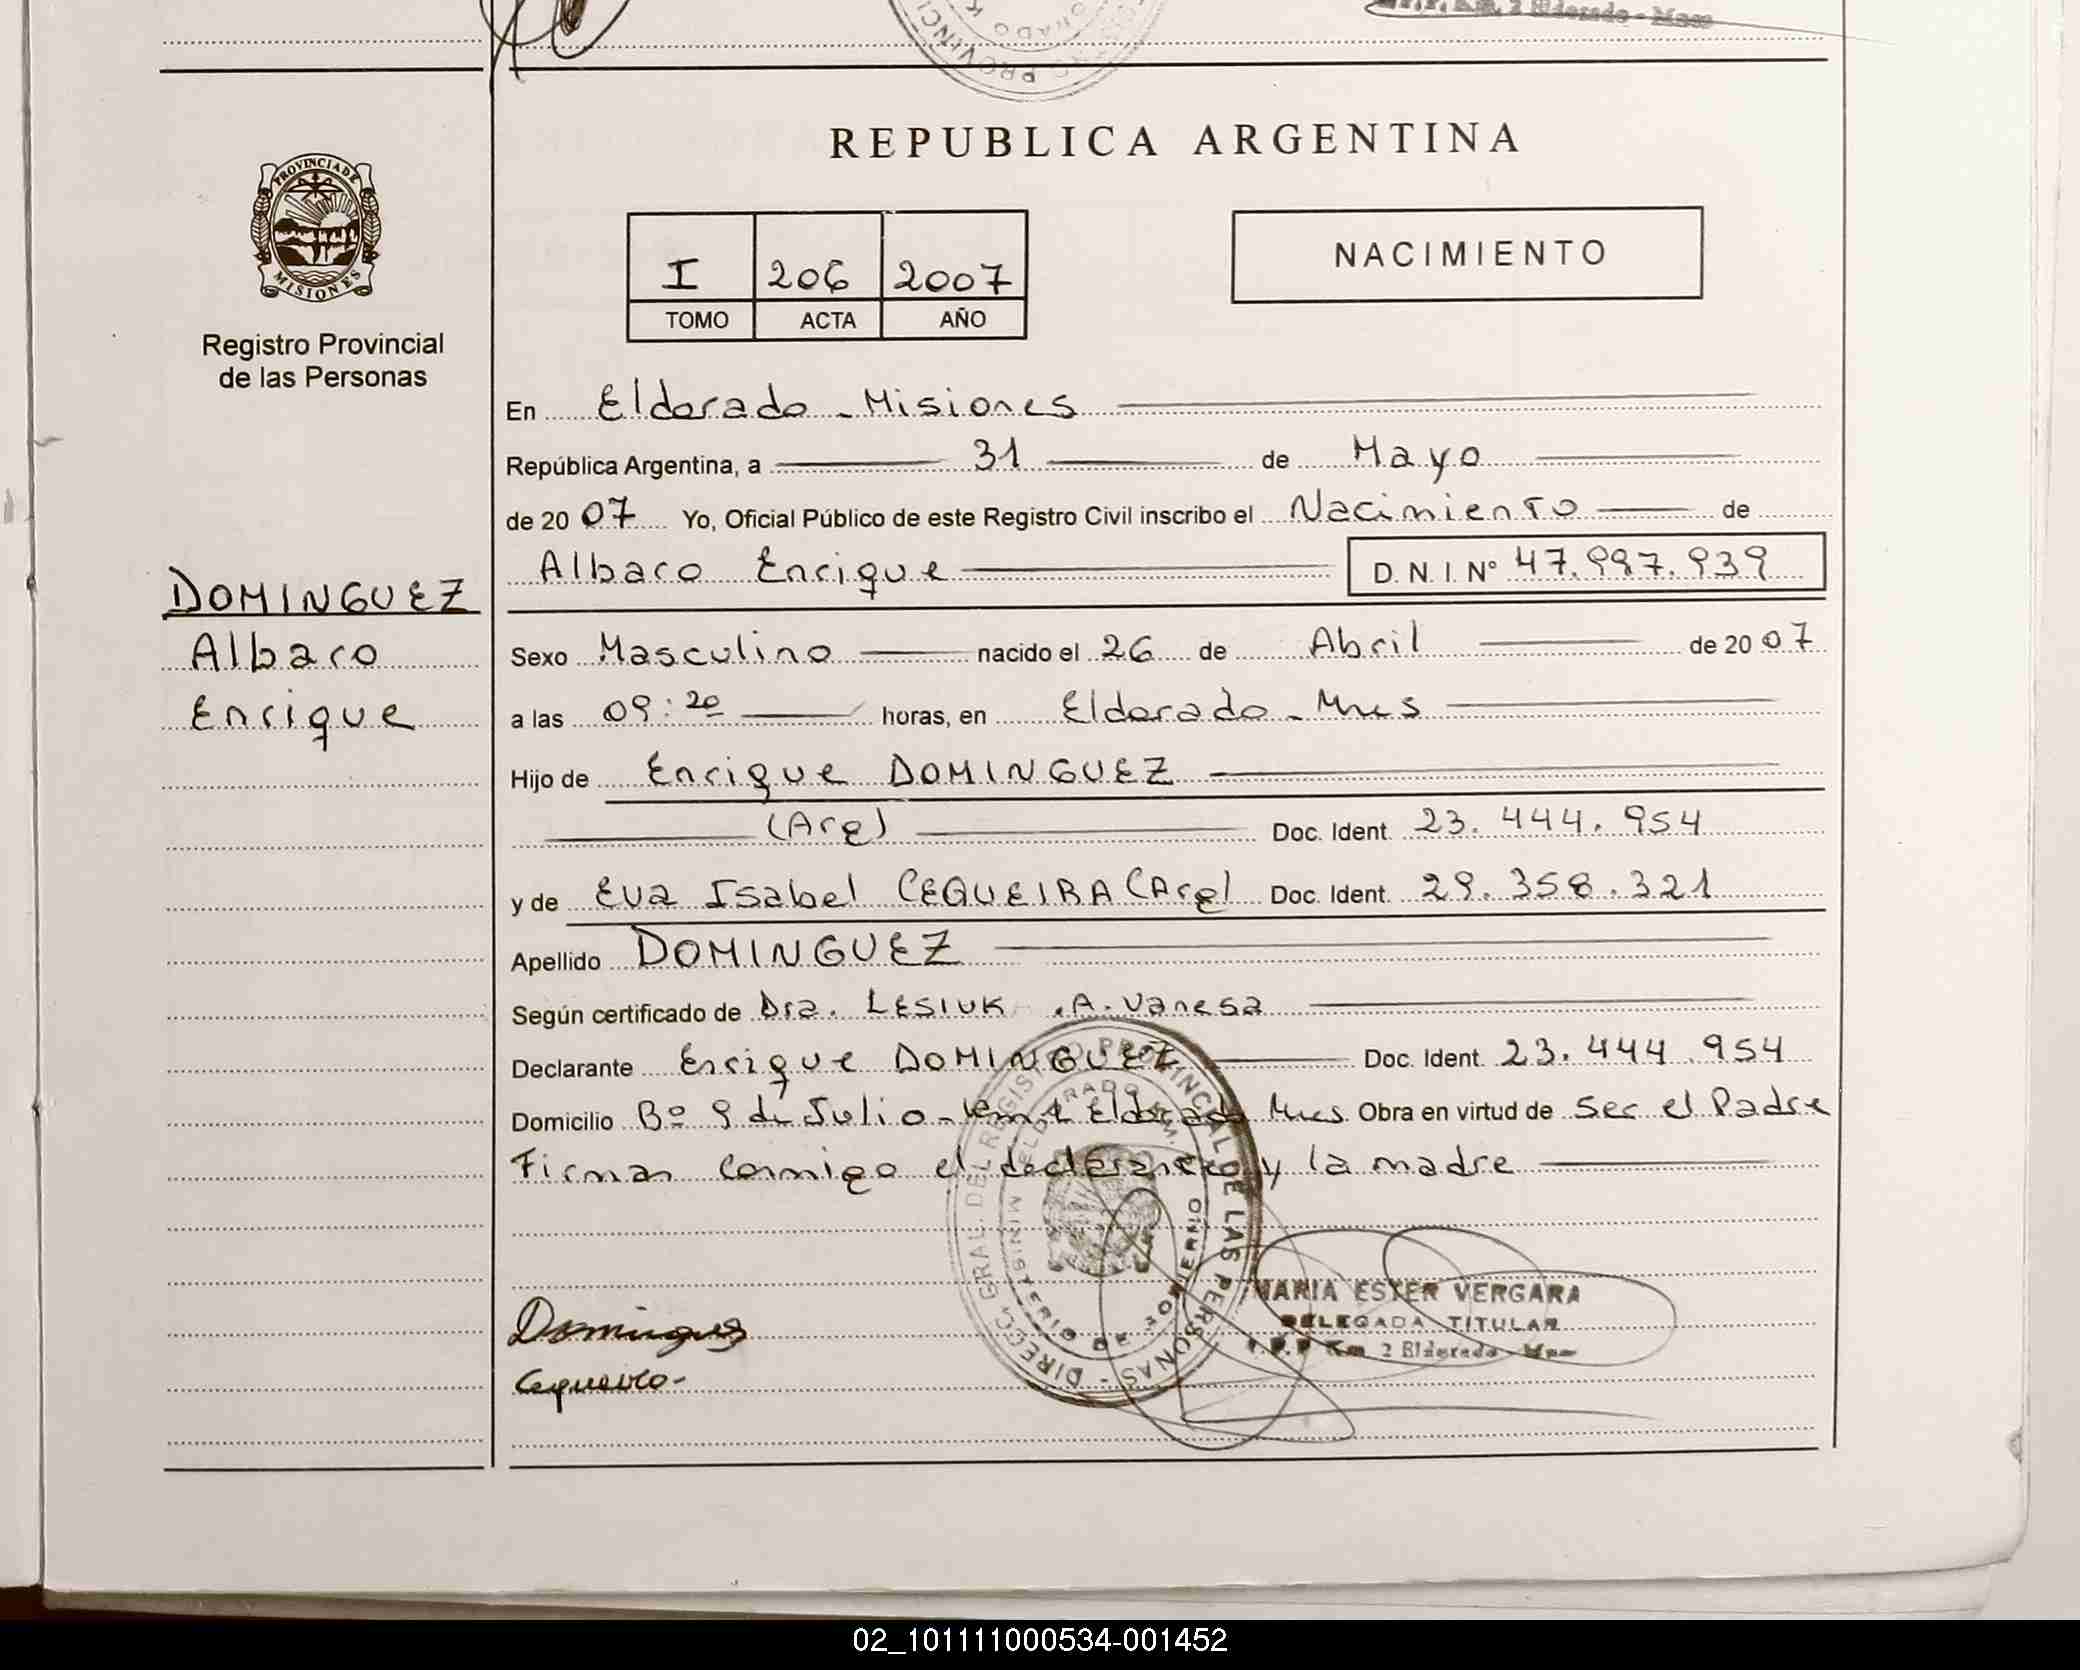 P.P. Km. 2 Eldorado - Mnes
PROVINCIADE
MISIONES
Registro Provincial
de las Personas
DOMINGUEZ
Albaro
Enrique
REPUBLICA ARGENTINA
I 206 2007
TOMO ACTA AÑO
NACIMIENTO
En Eldorado - Misiones
República Argentina, a 31 de Mayo
de 20 07 Yo, Oficial Público de este Registro Civil inscribo el Nacimiento de
Albaro Enrique D.N.I. Nº 47.997.939
Sexo Masculino nacido el 26 de Abril de 20 07
a las 09:20 horas, en Eldorado - Mnes
Hijo de Enrique DOMINGUEZ
(Arg) Doc. Ident. 23.444.954
y de Eva Isabel CEQUEIRA (Arg) Doc. Ident. 29.358.321
Apellido DOMINGUEZ
Según certificado de Dra. LESIUK .A. Vanesa
Declarante Enrique DOMINGUEZ Doc. Ident. 23.444.954
Domicilio Bº 9 de Julio - Eldorado Mnes Obra en virtud de ser el Padre
Firman conmigo el declarante y la madre
DIRECC. GRAL. DEL REGISTRO PROVINCIAL DE LAS PERSONAS -
MINISTERIO DE GOBIERNO
MARIA ESTER VERGARA
DELEGADA TITULAR
R.P.P Km 2 Eldorado - Mnes
Dominguez
Cequeira-
02_101111000534-001452